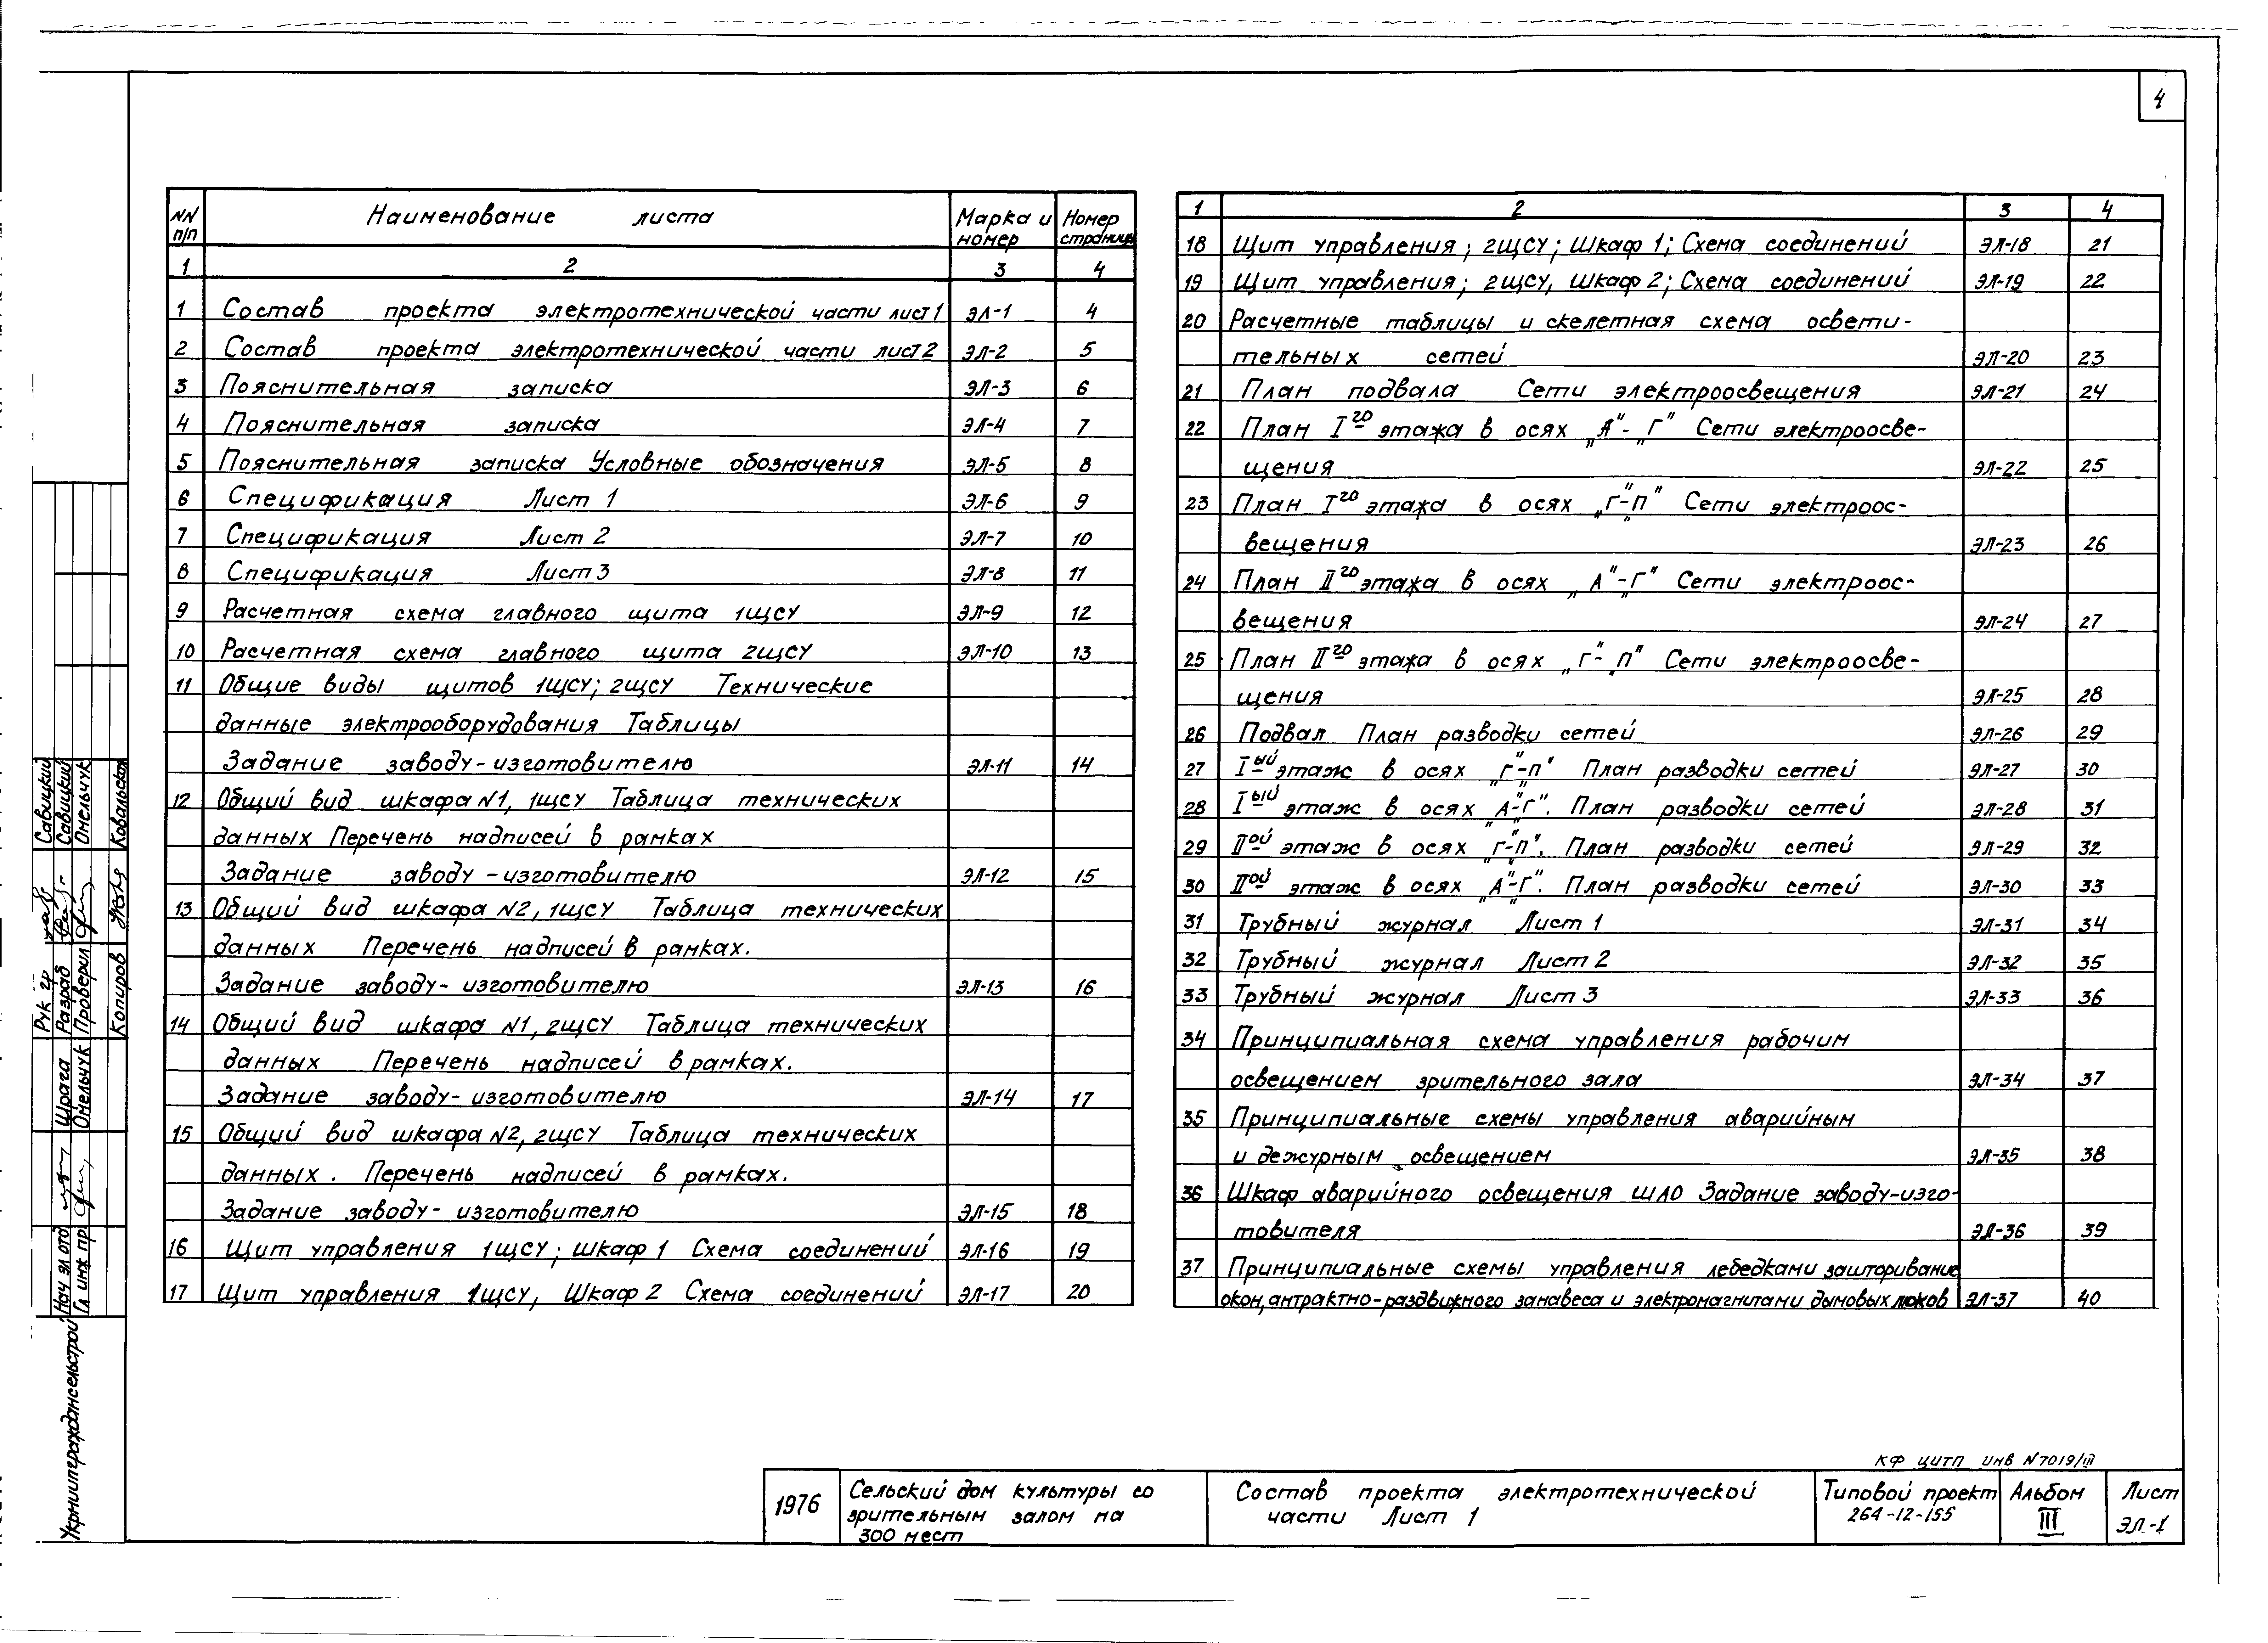 4
NN п/п Наименование листа Марка и номер Номер страницы
1 2 3 4
1 Состав проекта электротехнической части лист 1 ЭЛ-1 4
2 Состав проекта электротехнической части лист 2 ЭЛ-2 5
3 Пояснительная записка ЭЛ-3 6
4 Пояснительная записка ЭЛ-4 7
5 Пояснительная записка Условные обозначения ЭЛ-5 8
6 Спецификация Лист 1 ЭЛ-6 9
7 Спецификация Лист 2 ЭЛ-7 10
8 Спецификация Лист 3 ЭЛ-8 11
9 Расчетная схема главного щита 1ЩСУ ЭЛ-9 12
10 Расчетная схема главного щита 2ЩСУ ЭЛ-10 13
11 Общие виды щитов 1ЩСУ; 2ЩСУ Технические
данные электрооборудования Таблицы
Задание заводу-изготовителю ЭЛ-11 14
12 Общий вид шкафа N1, 1ЩСУ Таблица технических
данных Перечень надписей в рамках
Задание заводу-изготовителю ЭЛ-12 15
13 Общий вид шкафа N2, 1ЩСУ Таблица технических
данных Перечень надписей в рамках.
Задание заводу-изготовителю ЭЛ-13 16
14 Общий вид шкафа N1, 2ЩСУ Таблица технических
данных Перечень надписей в рамках.
Задание заводу-изготовителю ЭЛ-14 17
15 Общий вид шкафа N2, 2ЩСУ Таблица технических
данных. Перечень надписей в рамках.
Задание заводу-изготовителю ЭЛ-15 18
16 Щит управления 1ЩСУ; шкаф 1 Схема соединений ЭЛ-16 19
17 Щит управления 1ЩСУ, Шкаф 2 Схема соединений ЭЛ-17 20
1 2 3 4
18 Щит управления; 2ЩСУ; Шкаф 1; Схема соединений ЭЛ-18 21
19 Щит управления; 2ЩСУ, Шкаф 2; Схема соединений ЭЛ-19 22
20 Расчетные таблицы и скелетная схема освети-
тельных сетей ЭЛ-20 23
21 План подвала Сети электроосвещения ЭЛ-21 24
22 План I го этажа в осях „А"-„Г" Сети электроосве-
щения ЭЛ-22 25
23 План I го этажа в осях „Г"-„П" Сети электроос-
вещения ЭЛ-23 26
24 План II го этажа в осях „А"-„Г" Сети электроос-
вещения ЭЛ-24 27
25 План II го этажа в осях „Г"-„П" Сети электроосве-
щения ЭЛ-25 28
26 Подвал План разводки сетей ЭЛ-26 29
27 I ый этаж в осях „Г"-„П" План разводки сетей ЭЛ-27 30
28 I ый этаж в осях „А"-„Г". План разводки сетей ЭЛ-28 31
29 II ой этаж в осях „Г"-„П". План разводки сетей ЭЛ-29 32
30 II ой этаж в осях „А"-„Г". План разводки сетей ЭЛ-30 33
31 Трубный журнал Лист 1 ЭЛ-31 34
32 Трубный журнал Лист 2 ЭЛ-32 35
33 Трубный журнал Лист 3 ЭЛ-33 36
34 Принципиальная схема управления рабочим
освещением зрительного зала ЭЛ-34 37
35 Принципиальные схемы управления аварийным
и дежурным освещением ЭЛ-35 38
36 Шкаф аварийного освещения ШАО Задание заводу-изго-
товителя ЭЛ-36 39
37 Принципиальные схемы управления лебедками зашторивание
окон, антрактно-раздвижного занавеса и электромагнитами дымовых люков ЭЛ-37 40
КФ ЦИТП ИНВ N7019/III
1976
Сельский дом культуры со
зрительным залом на
300 мест
Состав проекта электротехнической
части Лист 1
Типовой проект
264-12-155
Альбом
III
Лист
ЭЛ-1
Укрниипграждансельстрой
Нач эл отд Шрага
Гл инж пр. Омельчук
Рук гр Савицкий
Разраб Савицкий
Проверил Омельчук
Копиров Ковальская